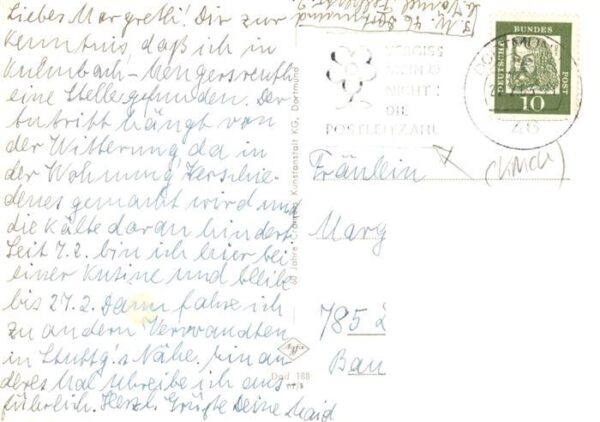 Liebes Margretli! Dir zur
Kenntnis, daß ich in
Kulmbach-Mengersreuth
eine Stelle gefunden. Der
Antritt hängt von
der Witterung, da in
der Wohnung, Verschie-
denes gemacht wird und
die Kälte daran hindert.
Seit 7.2. bin ich hier bei
einer Kusine und bleibe
bis 27.2. Dann fahre ich
zu andern Verwandten
in Stuttg.'s Nähe. Ein an-
deres Mal schreibe ich aus-
führlich. Herzl. Grüße Deine Maid
46 Dortmund
Kunstanstalt KG, Dortmund
Dod 188
VERGISS
MEIN
NICHT
DIE
POSTLEITZAHL
DORTMUND
46
DEUTSCHE BUNDESPOST
10
Fräulein
Marg
785